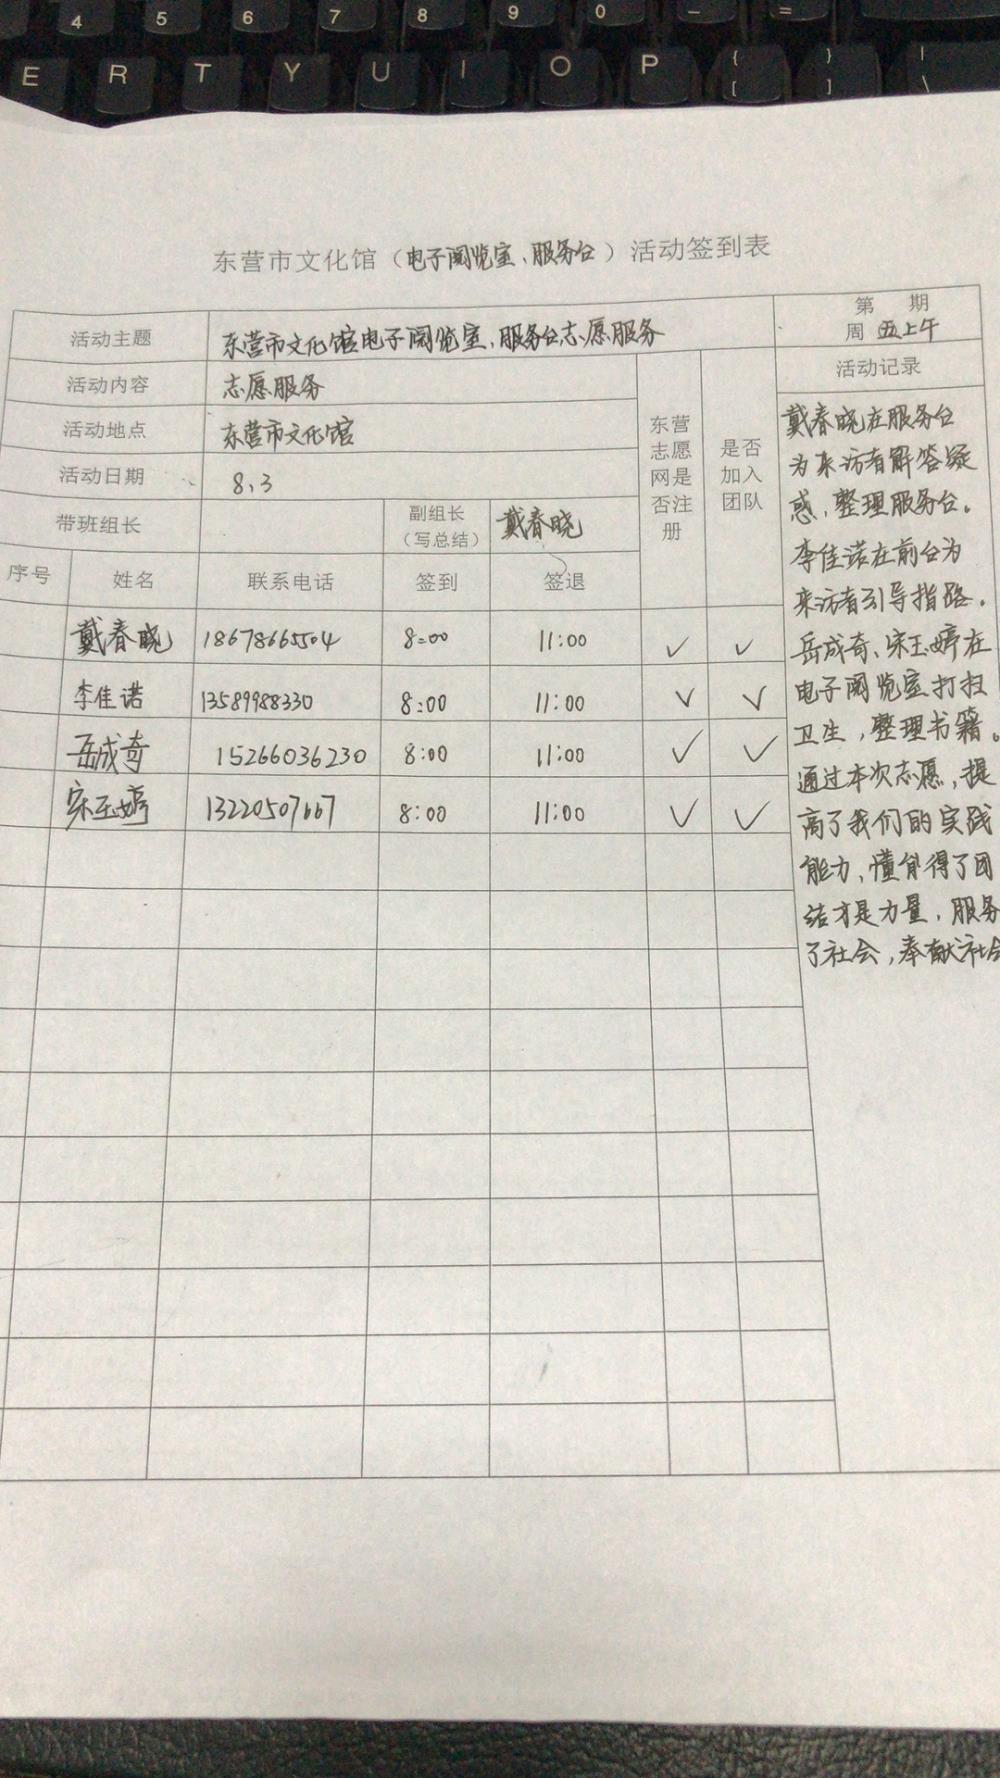 4 5 6 7 8 9 0 - =
E R T Y U I O P { [ } ] | \
东营市文化馆（电子阅览室、服务台）活动签到表
活动主题 东营市文化馆电子阅览室、服务台志愿服务
第 期
周 五上午
活动内容 志愿服务
活动地点 东营市文化馆
活动日期 8、3
带班组长 副组长（写总结） 戴春晓
东营志愿网是否注册
是否加入团队
序号 姓名 联系电话 签到 签退
戴春晓 18678665504 8:00 11:00 ✓ ✓
李佳诺 13589988330 8:00 11:00 ✓ ✓
岳成奇 15266036230 8:00 11:00 ✓ ✓
宋玉婷 13220507667 8:00 11:00 ✓ ✓
活动记录
戴春晓在服务台
为来访者解答疑
惑，整理服务台。
李佳诺在前台为
来访者引导指路。
岳成奇、宋玉婷在
电子阅览室打扫
卫生，整理书籍。
通过本次志愿，提
高了我们的实践
能力，懂得了团
结才是力量，服务
了社会，奉献社会